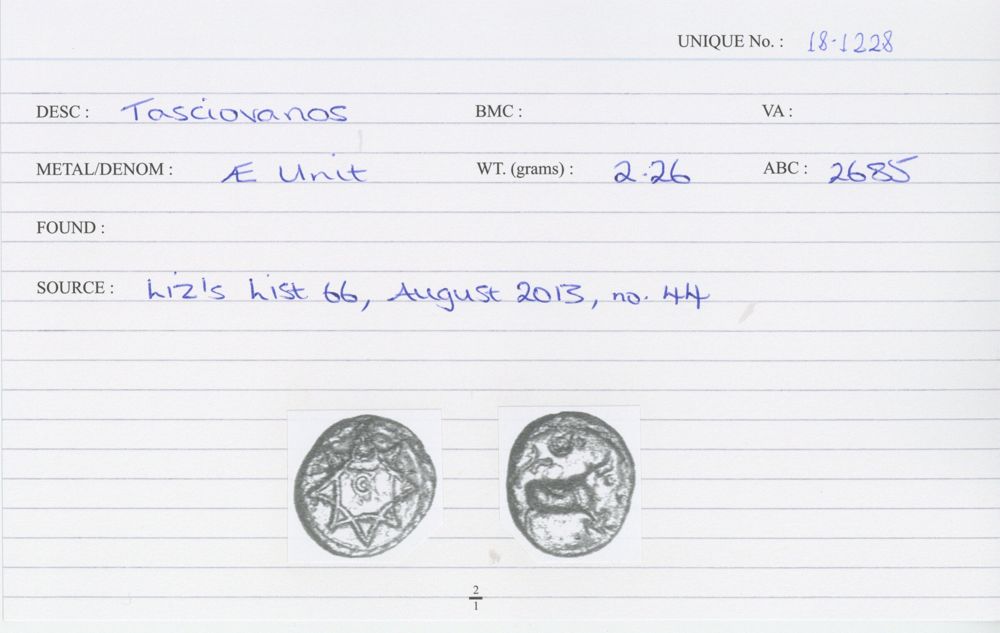 UNIQUE No. : 18-1228
DESC : Tasciovanos BMC : VA :
METAL/DENOM : Æ Unit WT. (grams) : 2.26 ABC : 2685
FOUND :
SOURCE : Liz's List 66, August 2013, no. 44
2
1